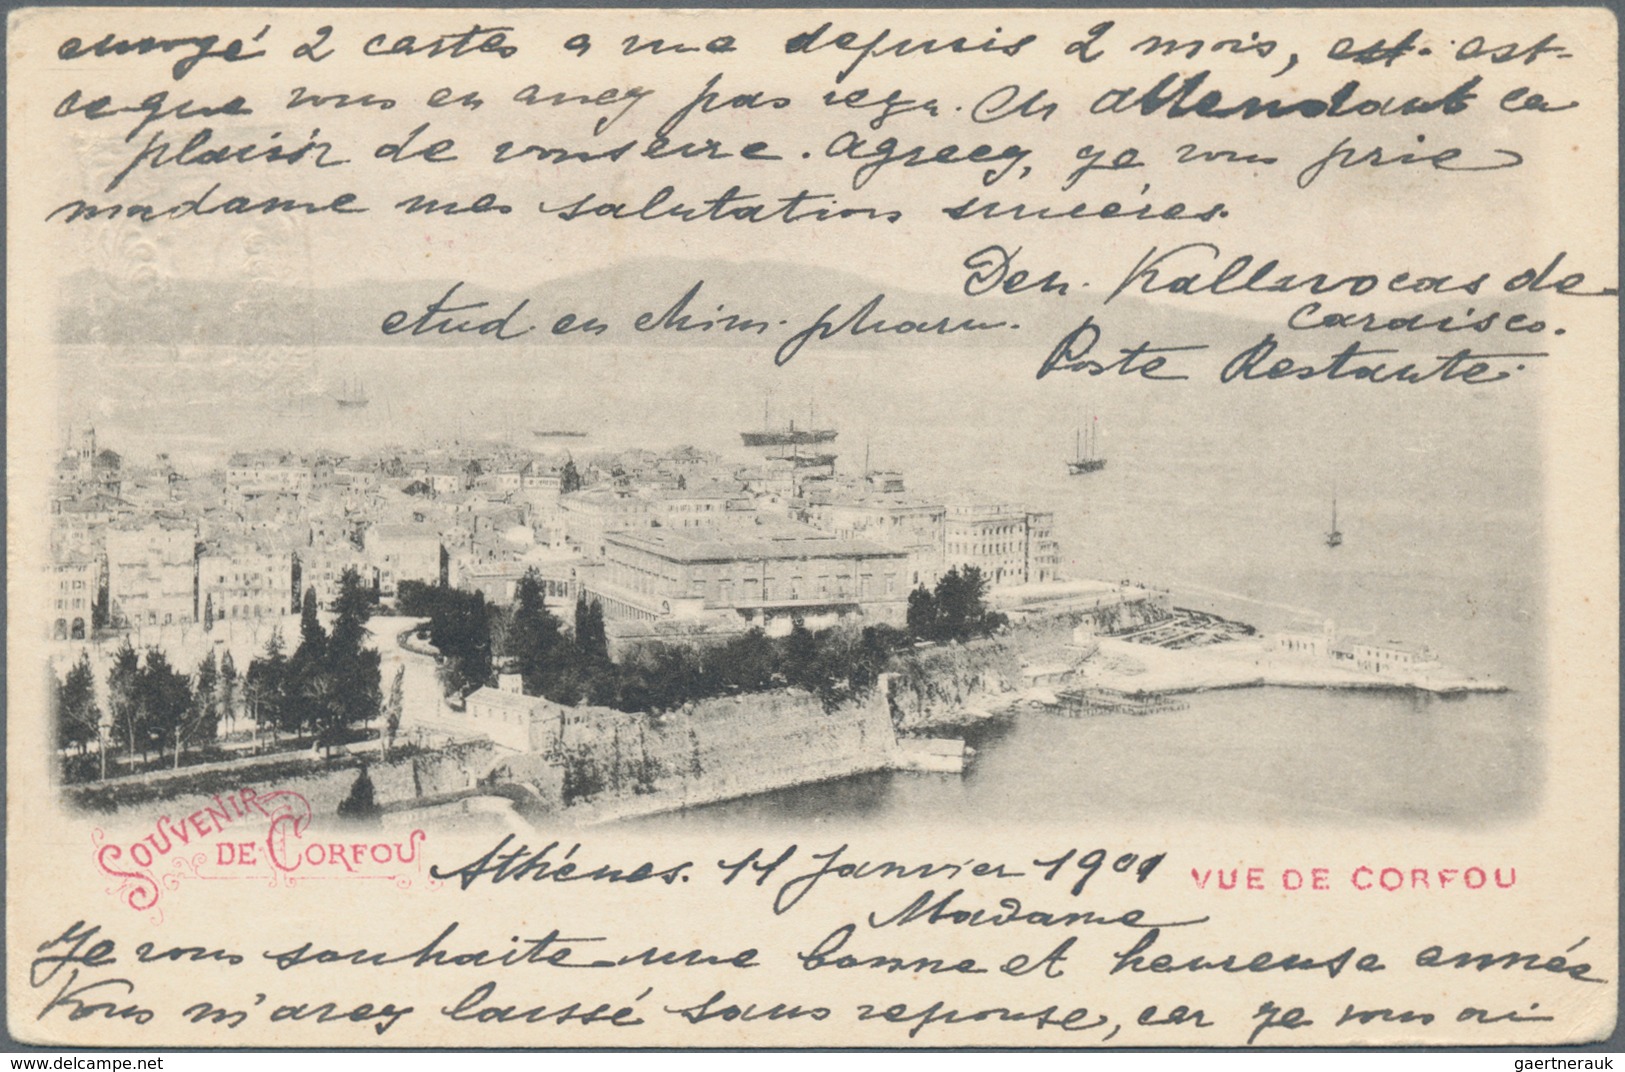 envoyé 2 cartes a une depuis 2 mois, est-est-
ce que vous en avez pas reçu. En attendant ce
plaisir de vous lire. Agreez, je vous prie
madame mes salutations sincéres.
Den. Kallivocas de
etud. en chim. pharm.
Poste Restante.
SOUVENIR
DE CORFOU
Athénes. 11 Janvier 1901
VUE DE CORFOU
Madame
Je vous souhaite une bonne et heureuse année
Vous m'avez laissé sans reponse, car je vous ai
gaertnerauk